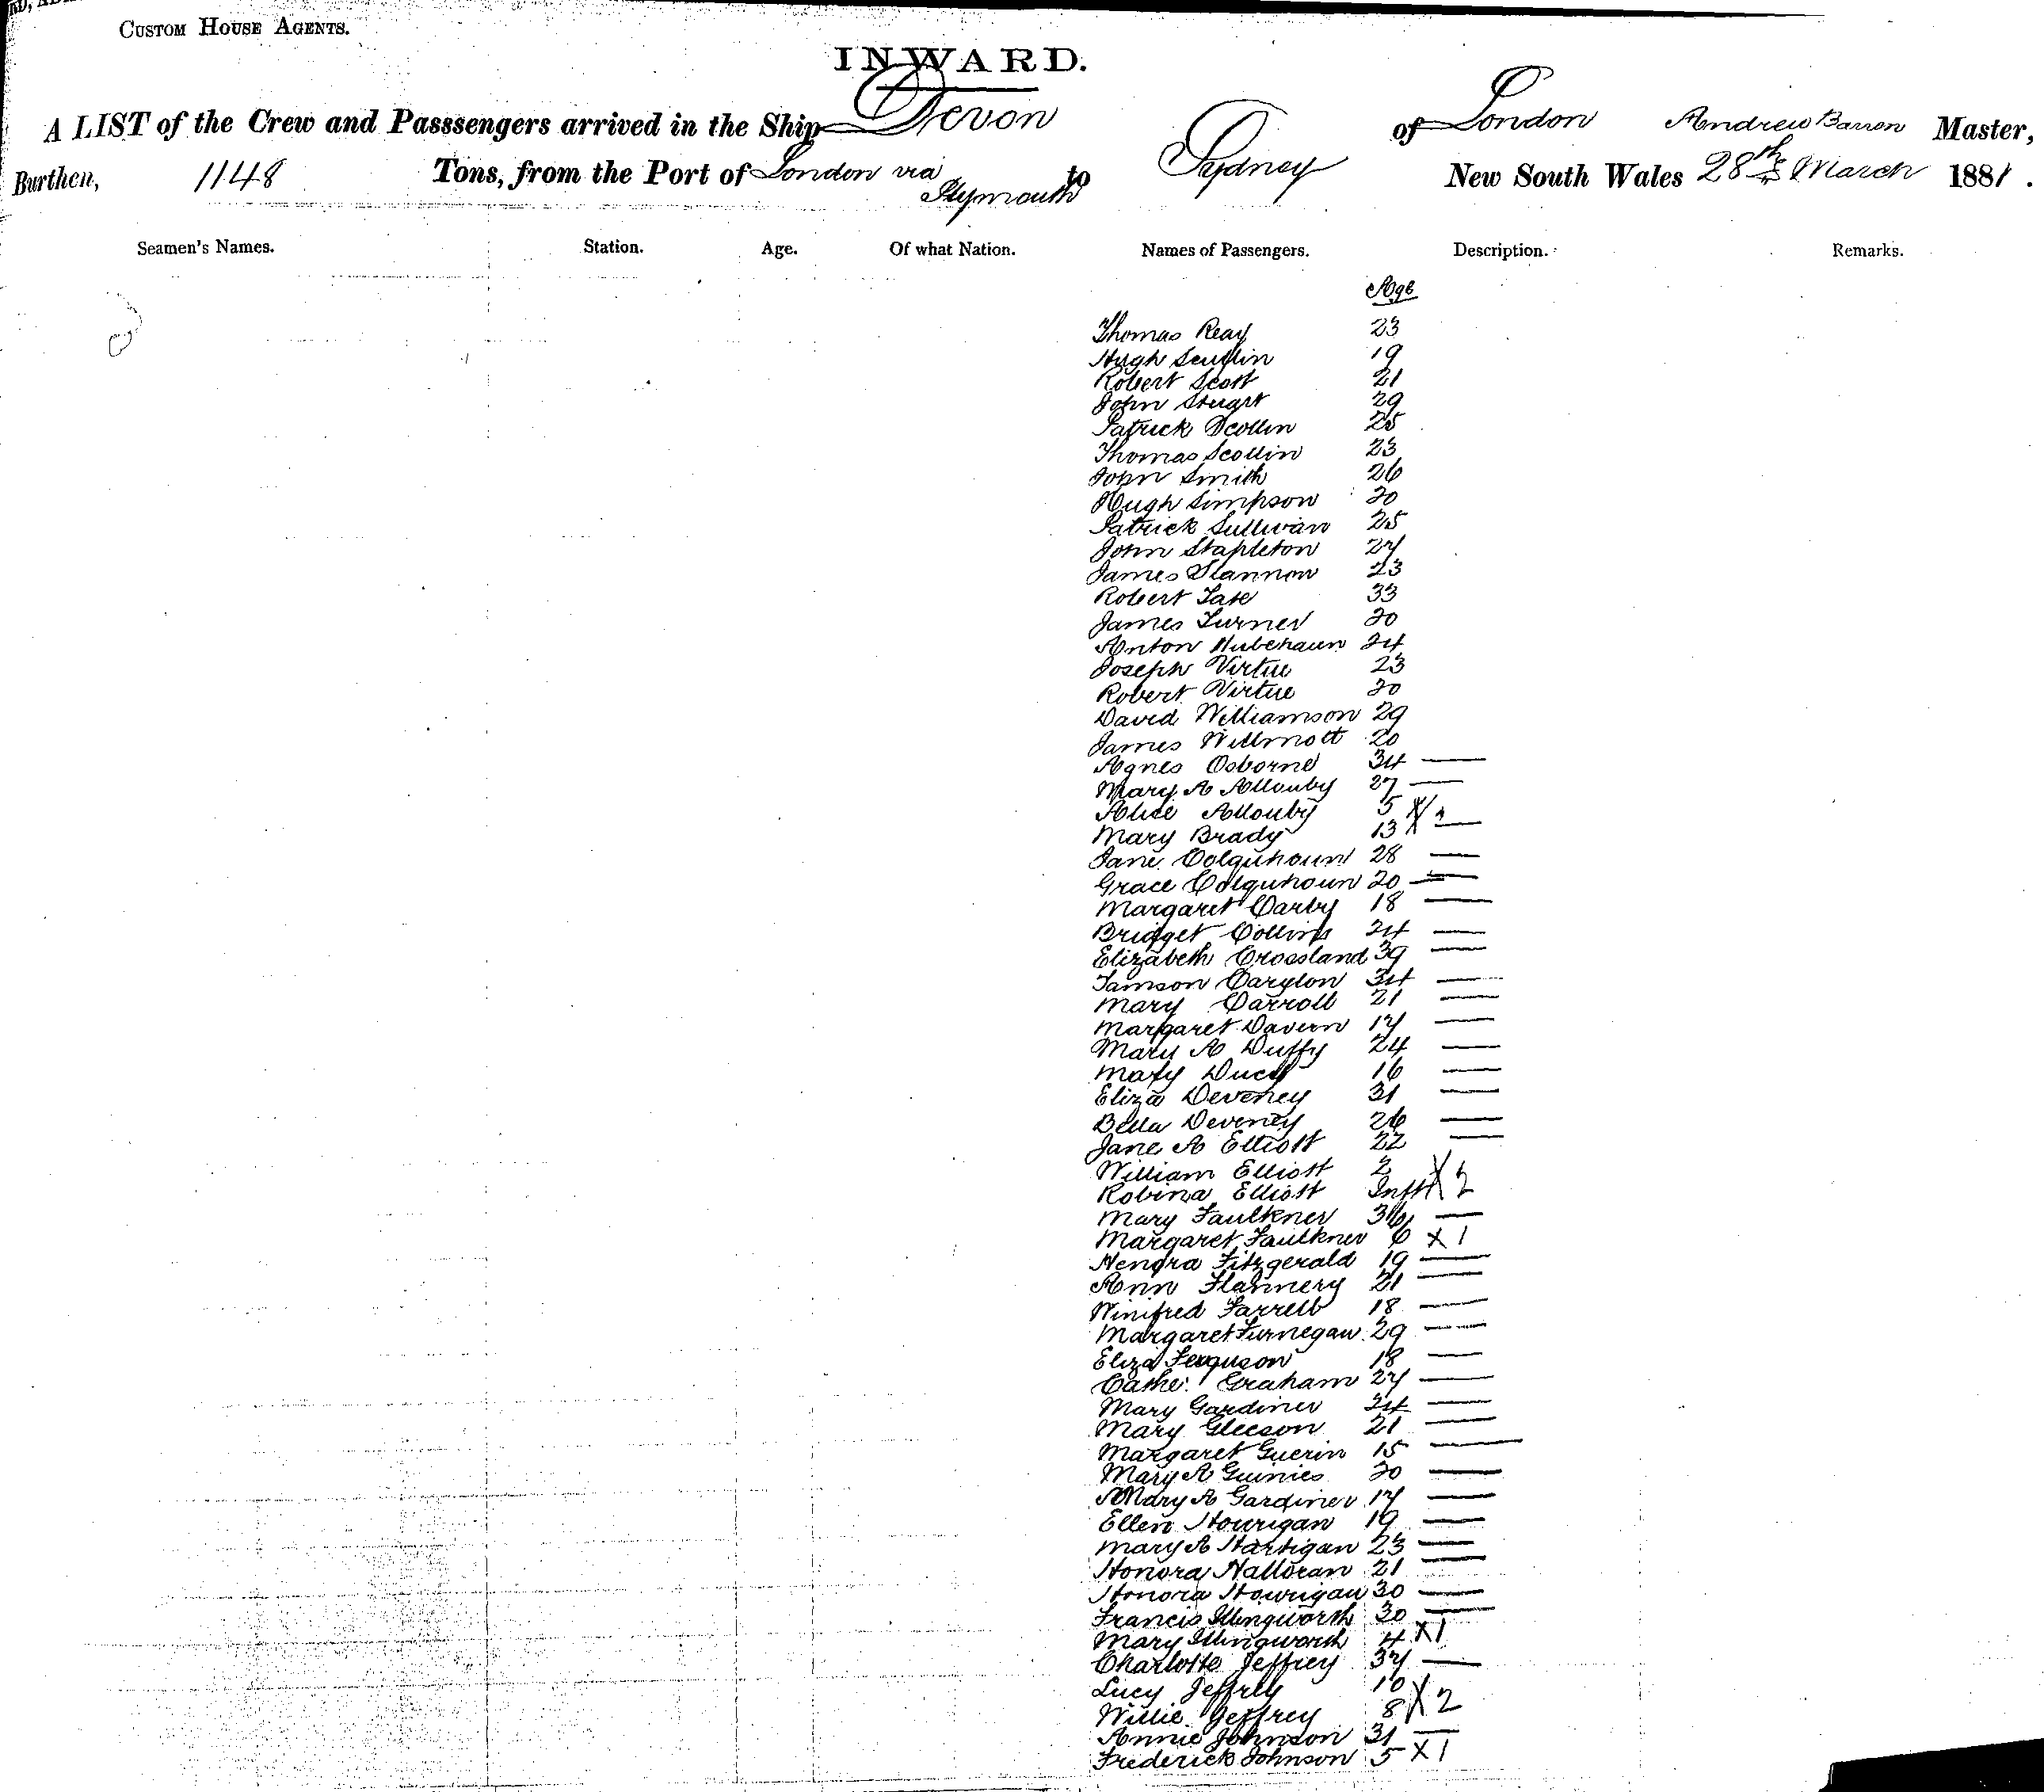 CUSTOM HOUSE AGENTS.
INWARD.
A LIST of the Crew and Passsengers arrived in the Ship Devon of London Andrew Barron Master,
Burthen, 1148 Tons, from the Port of London via Plymouth to Sydney New South Wales 28th March 1881.
Seamen's Names. Station. Age. Of what Nation. Names of Passengers. Description. Remarks.
Age
Thomas Reay 23
Hugh Scullin 19
Robert Scott 21
John Stuart 29
Patrick Scollin 25
Thomas Scollin 23
John Smith 26
Hugh Simpson 20
Patrick Sullivan 25
John Stapleton 27
James Slannon 23
Robert Tate 33
James Turner 20
Anton 24
Joseph Virtue 23
Robert Virtue 20
David Williamson 29
James Willmott 20
Agnes Osborne 34 —
Mary A Allonby 27 —
Alice Allonby 5 X 2
Mary Brady 13 X —
Jane Colquhoun 28 —
Grace Colquhoun 20 —
Margaret Carby 18 —
Bridget Collins 24 —
Elizabeth Crossland 39 —
Tamson Carylon 34 —
Mary Carroll 21 —
Margaret Davern 17 —
Mary A Duffy 24 —
Mary 16 —
Eliza Deveney 31 —
Bella Deveney 26 —
Jane A Elliott 22 —
William Elliott 2 X 2
Robina Elliott Inft
Mary Faulkner 36 —
Margaret Faulkner 6 X 1
Henora Fitzgerald 19 —
Ann Flannery 21 —
Winifred Farrell 18 —
Margaret Furnegan 29 —
Eliza Ferguson 18 —
Cathe. Graham 27 —
Mary Gardiner 24 —
Mary Gleeson 21 —
Margaret Guerin 15 —
Mary A Guinies 20 —
Mary A Gardiner 17 —
Ellen Hourigan 19 —
Mary A Hartigan 23 —
Honora Halloran 21 —
Honora Hourigan 30 —
Francis Illingworth 30 —
Mary Illingworth 4 X 1
Charlotte Jeffrey 37 —
Lucy Jeffrey 10 X 2
Willie Jeffrey 8
Annie Johnson 31 —
Frederick Johnson 5 X 1